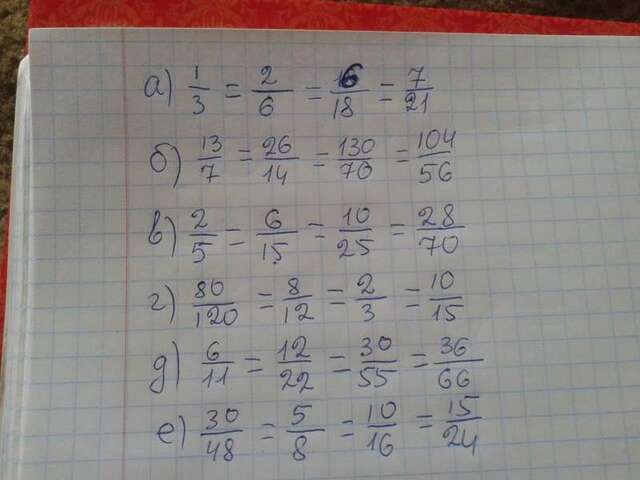 а) 1/3 = 2/6 = 6/18 = 7/21
б) 13/7 = 26/14 = 130/70 = 104/56
в) 2/5 = 6/15 = 10/25 = 28/70
г) 80/120 = 8/12 = 2/3 = 10/15
д) 6/11 = 12/22 = 30/55 = 36/66
е) 30/48 = 5/8 = 10/16 = 15/24